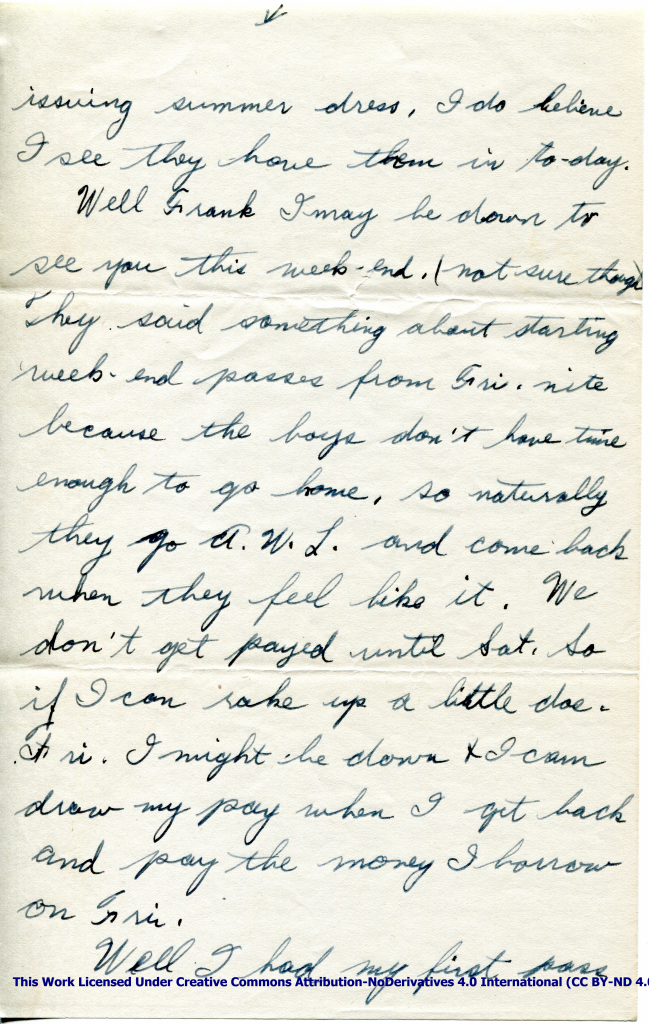 issuing summer dress, I do believe
I see they have them in to-day.
Well Frank I may be down to
see you this week-end. (not sure though)
They said something about starting
week-end passes from Fri. nite
because the boys don't have time
enough to go home, so naturally
they go A.W.L. and come back
when they feel like it. We
don't get payed until Sat. So
if I can rake up a little doe.
Fri. I might be down & I can
draw my pay when I get back
and pay the money I borrow
on Fri.
Well I had my first pass
This Work Licensed Under Creative Commons Attribution-NoDerivatives 4.0 International (CC BY-ND 4.0